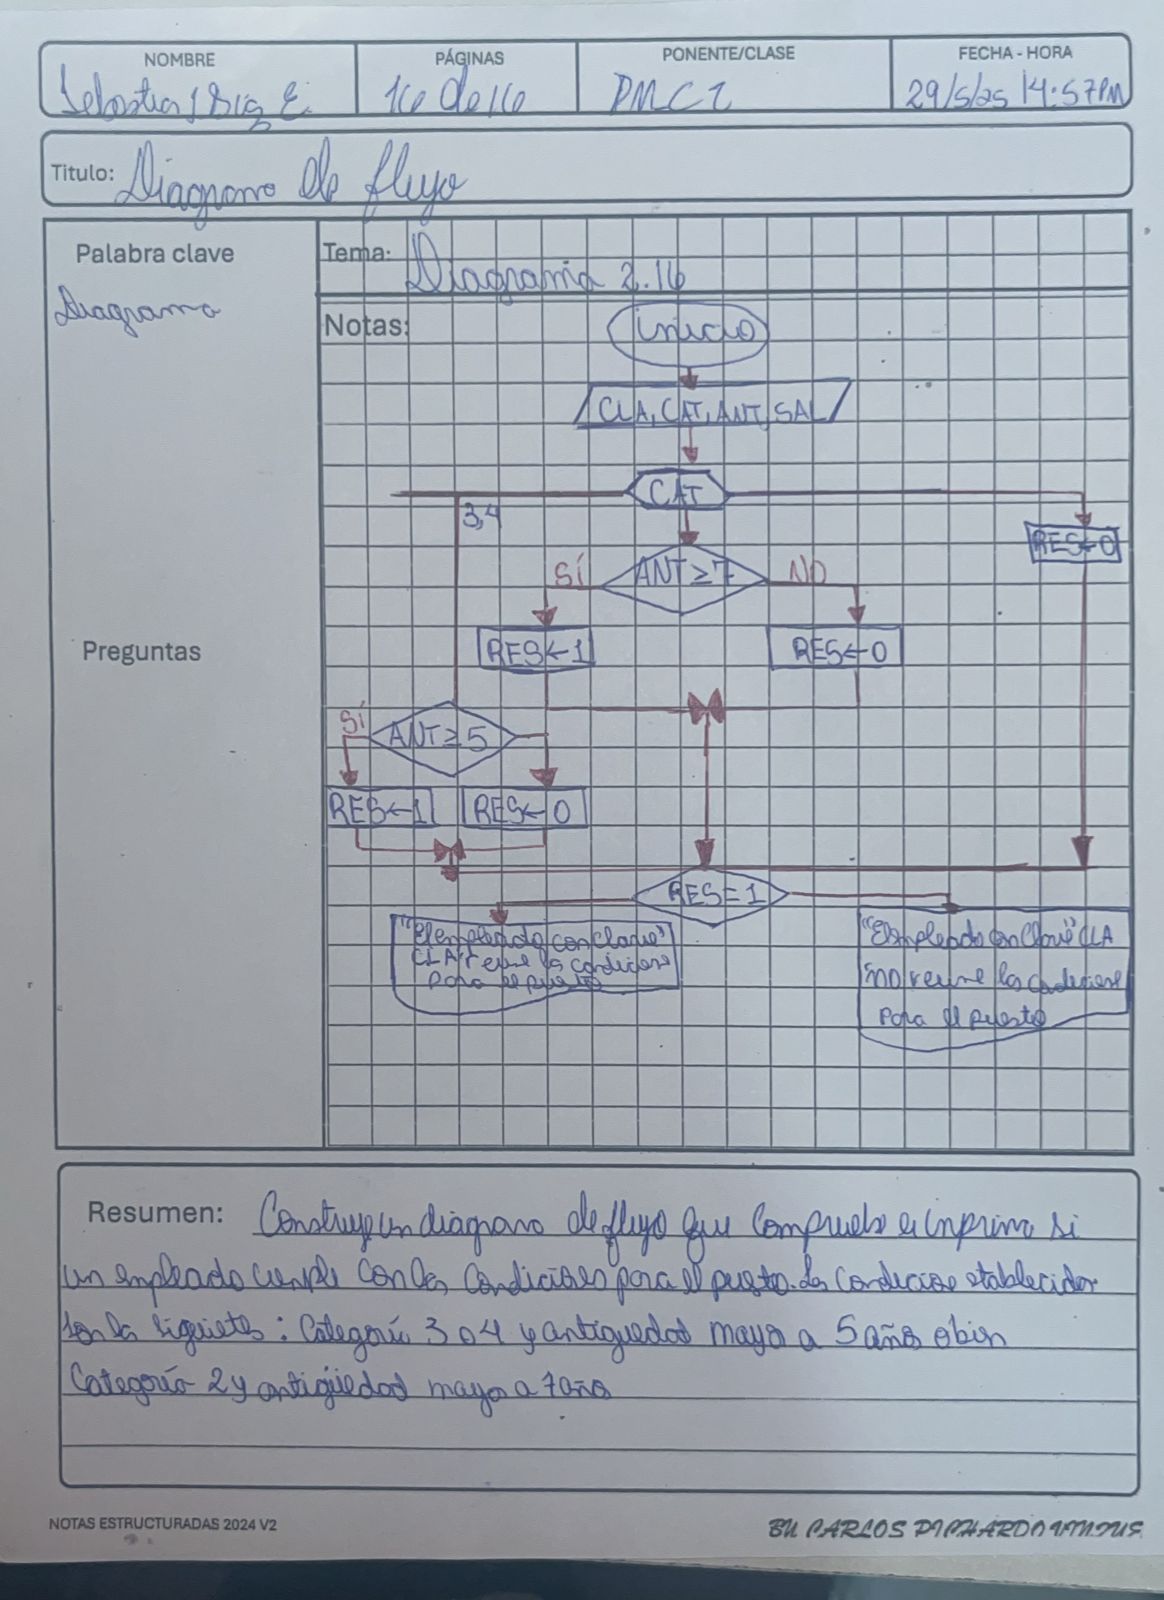 NOMBRE
PÁGINAS
PONENTE/CLASE
FECHA - HORA
16 de 16
PMC1
29/5/25 14:57PM
Titulo: Diagrama de flujo
Palabra clave
Diagrama
Tema: Diagrama 2.16
Notas:
inicio
CLA, CAT, ANT, SAL
CAT
3,4
RES←0
SÍ
ANT ≥ 7
NO
RES←1
RES←0
Preguntas
SÍ
ANT ≥ 5
RES←1
RES←0
RES = 1
"El empleado con clave"
CLA reune las condiciones
para el puesto
"El empleado con clave" CLA
no reune las condiciones
para el puesto
Resumen: Construye un diagrama de flujo que compruebe e imprima si
un empleado cumple con las condiciones para el puesto. Las condiciones establecidas
son las siguientes: Categoría 3 o 4 y antiguedad mayor a 5 años o bien
Categoría 2 y antigüedad mayor a 7 años
NOTAS ESTRUCTURADAS 2024 V2